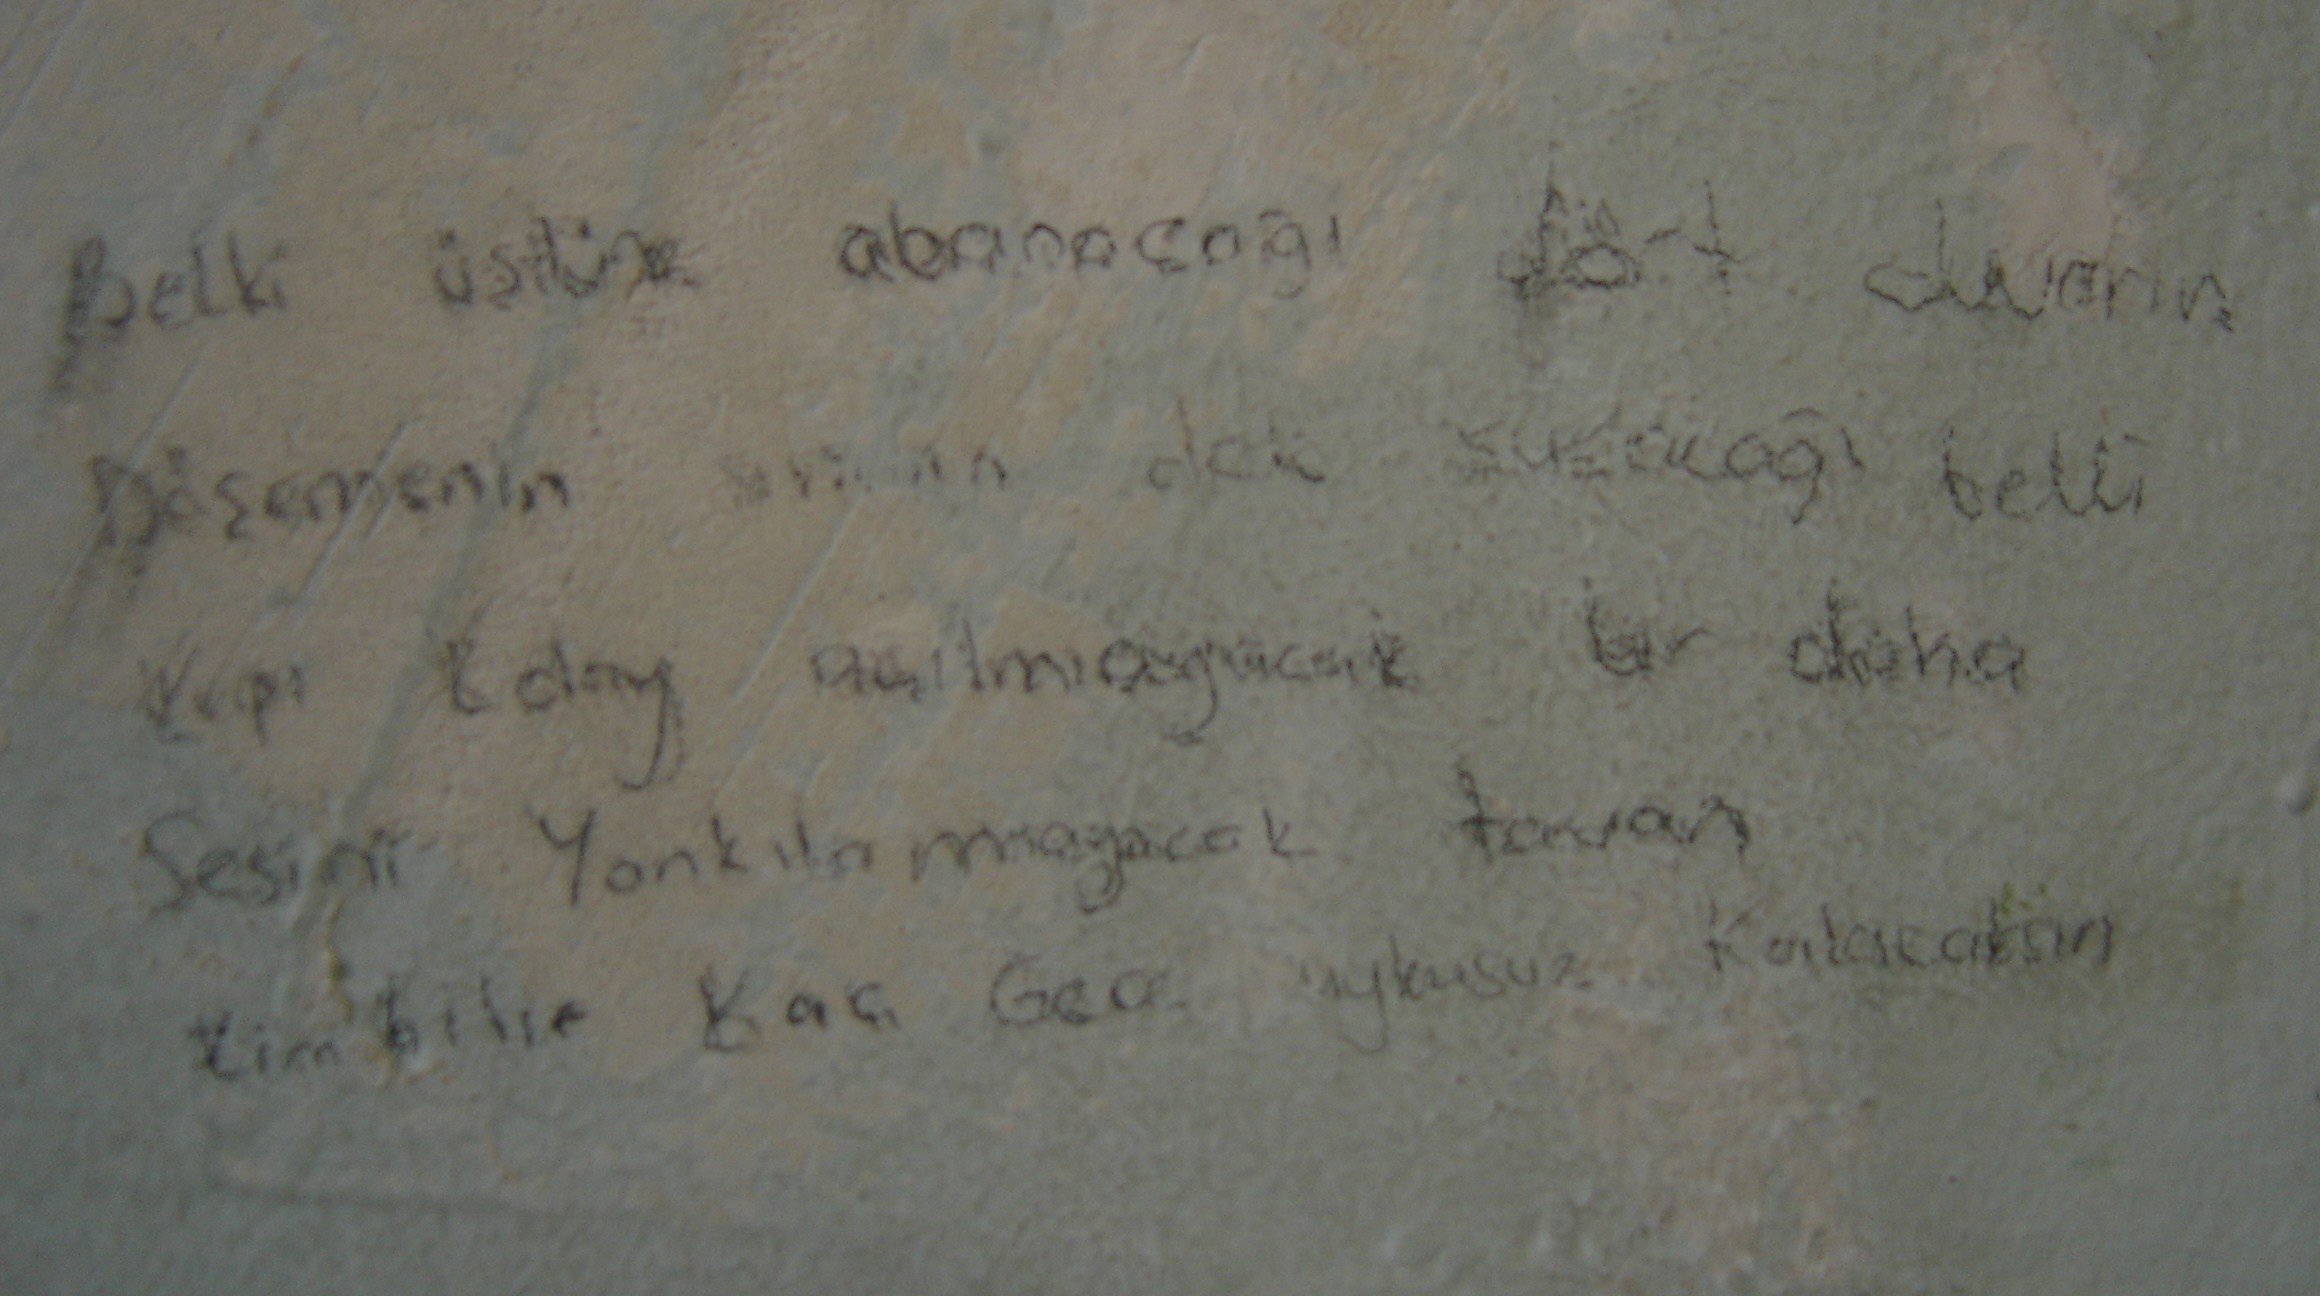 Belki üstüne abanacağı dört duvarın
Döşemenin dek belli
Kapı kolay açılmıayacak bir daha
Sesini Yankılanmayacak tavan
kim bilir Kaç Gece uykusuz Kalacaksın